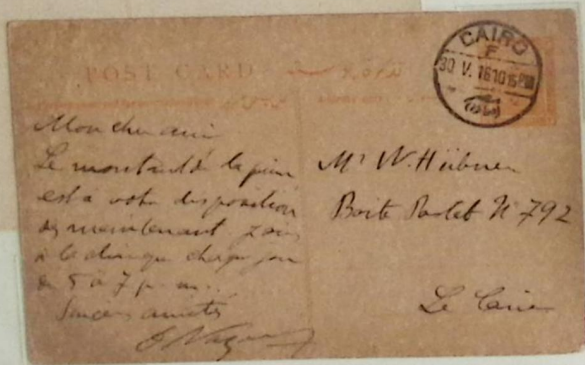 POST CARD
CAIRO
F
30 V. 16 10 15 PM
Mon cher ami
Le montant de la
est à votre disposition
dès maintenant
à la clinique chaque jour
de 5 à 7 p. m.
Sincères amitiés
Mr W. Hübner
Boite Postale N° 792
Le Caire